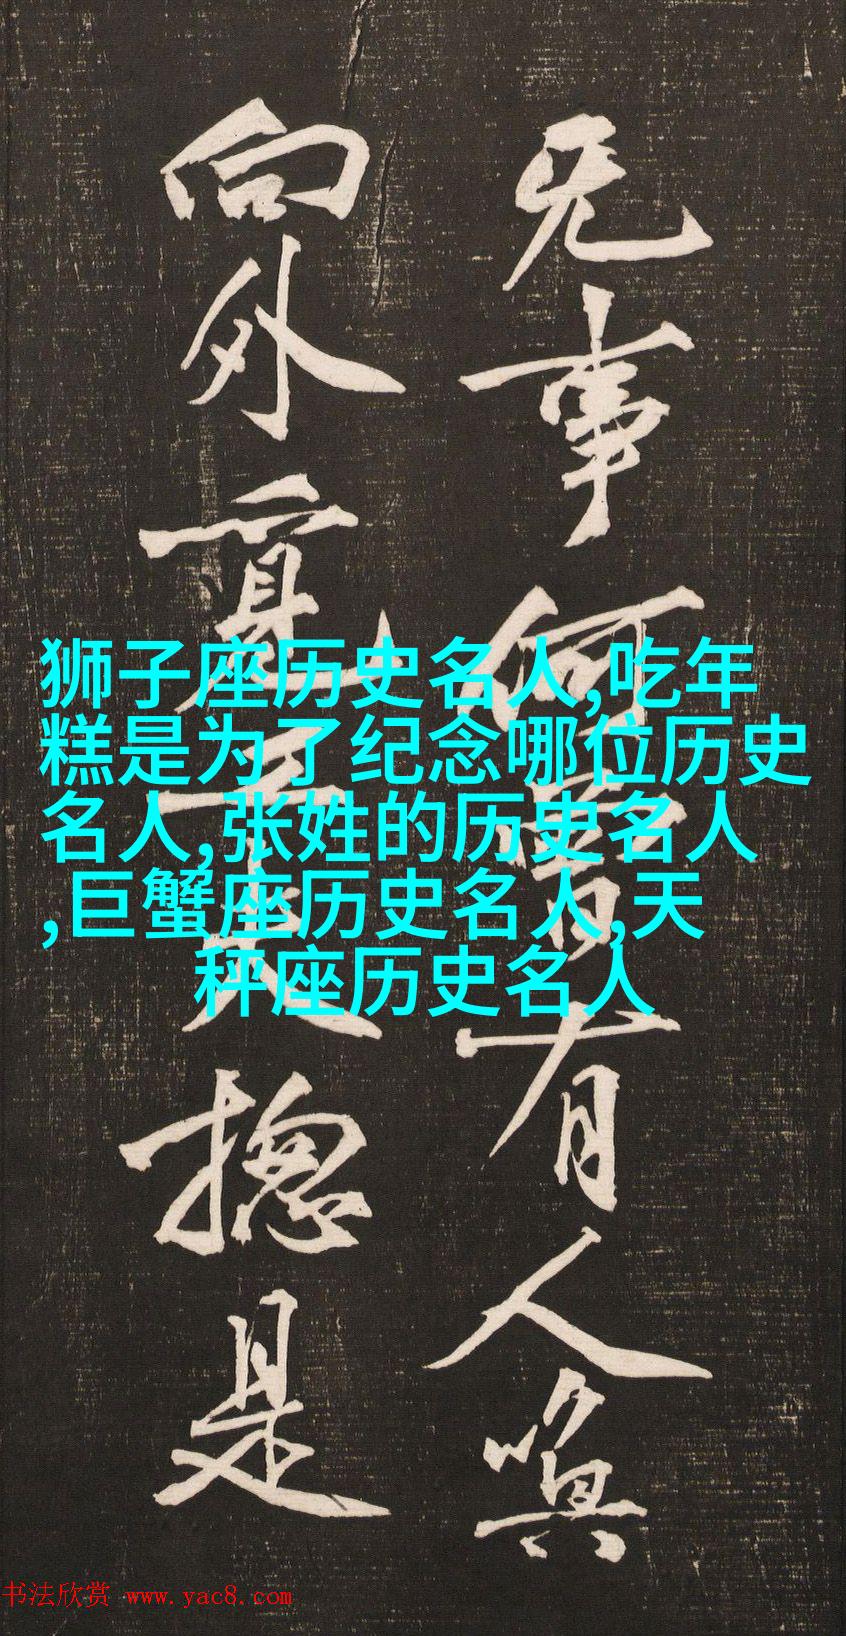 事何曾有人嗔
向外揔是
狮子座历史名人,吃年
糕是为了纪念哪位历史
名人,张姓的历史名人
,巨蟹座历史名人,天
秤座历史名人
书法欣赏 www.yac8.com